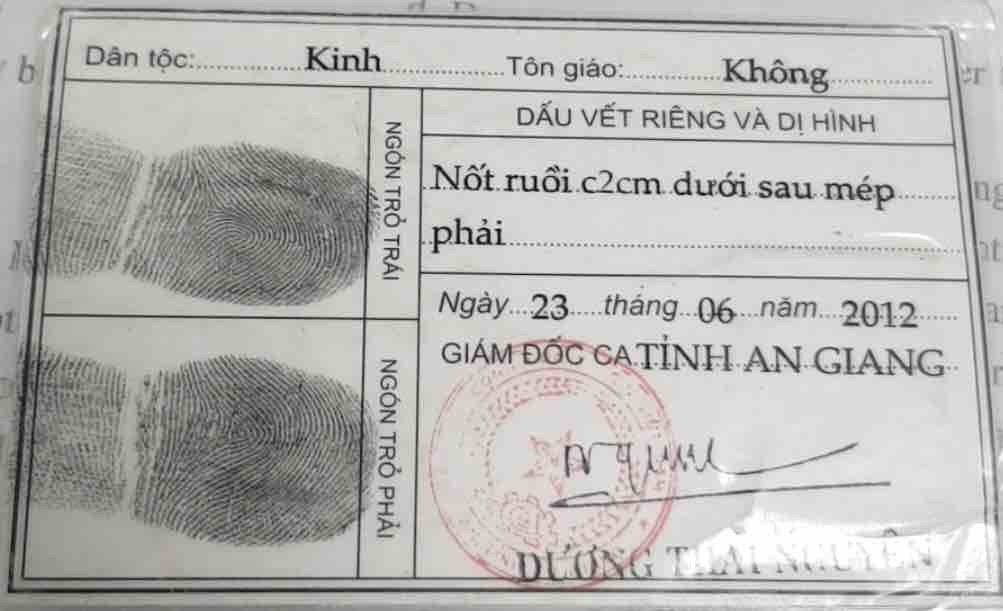 Dân tộc: Kinh Tôn giáo: Không
NGÓN TRỎ TRÁI
DẤU VẾT RIÊNG VÀ DỊ HÌNH
Nốt ruồi c2cm dưới sau mép
phải
NGÓN TRỎ PHẢI
Ngày 23 tháng 06 năm 2012
GIÁM ĐỐC CA TỈNH AN GIANG
DƯƠNG THÁI NGUYÊN